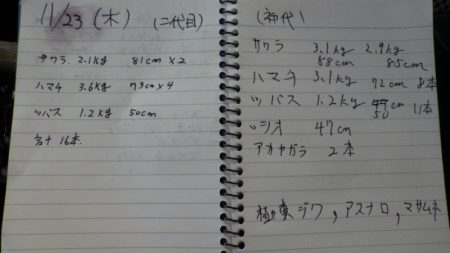 11/23 (木) (二代目)
サワラ 2.1kg 81cm×2
ハマチ 3.6kg 73cm×4
ツバス 1.2kg 50cm
合計 16本
(初代)
サワラ 3.1kg 2.9kg
88cm 85cm
ハマチ 3.1kg 72cm 8本
ツバス 1.2kg cm 11本
50
シオ 47cm
アオヤガラ 2本
極東ジグ, アスナロ, マサムネ